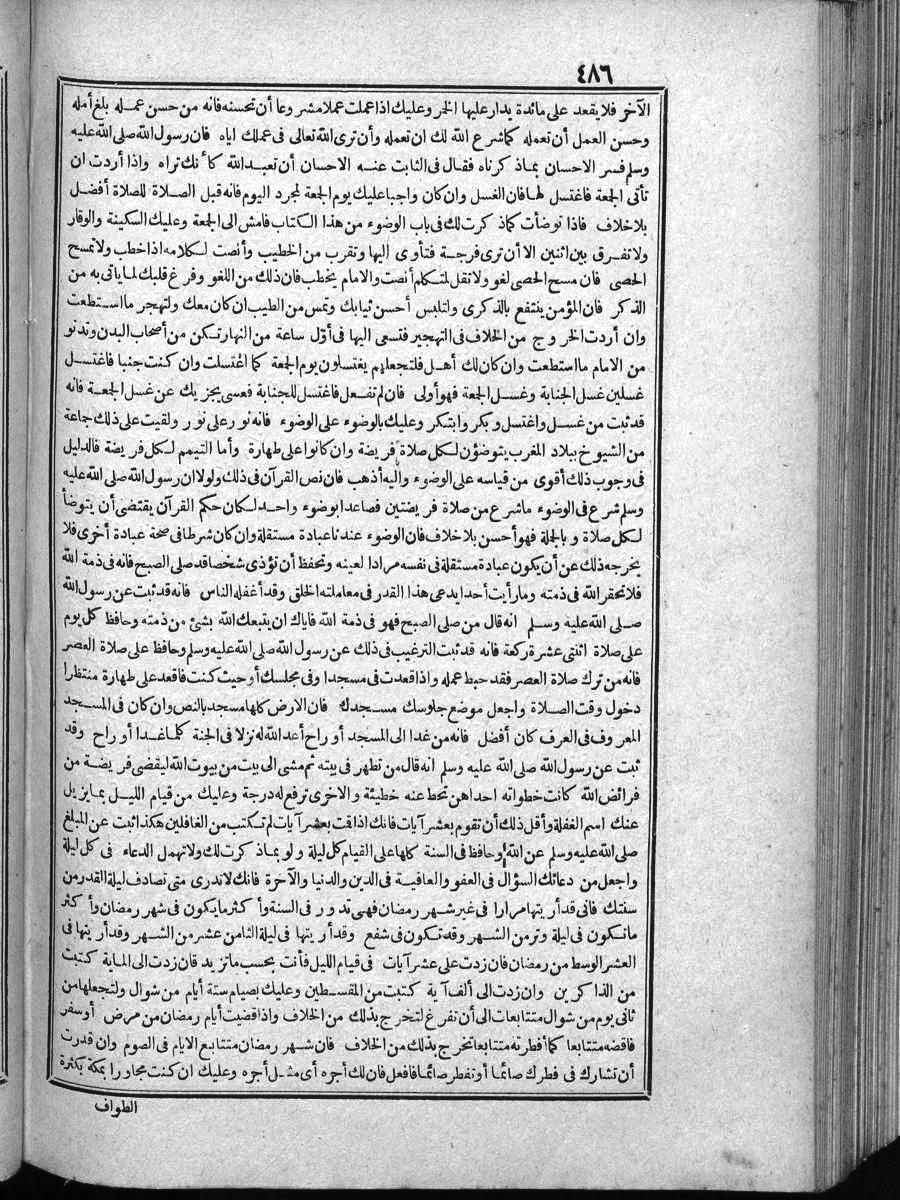 ٤٨٦
الآخر فلا يقعد على مائدة يدار عليها الخمر وعليك اذا عملت عملا مشروعا أن تحسنه فانه من حسن عمله بلغ أمله
وحسن العمل أن تعمله كما شرع الله لك ان تعمله وأن ترى الله تعالى فى عملك اياه فان رسول الله صلى الله عليه
وسلم فسر الاحسان بما ذكرناه فقال فى الثابت عنه الاحسان أن تعبد الله كأنك تراه واذا أردت ان
تأتى الجمعة فاغتسل لها فان الغسل وان كان واجبا عليك يوم الجمعة لمجرد اليوم فانه قبل الصلاة للصلاة أفضل
بلا خلاف فاذا توضأت كما ذكرت لك فى باب الوضوء من هذا الكتاب فامش الى الجمعة وعليك السكينة والوقار
ولا تفرق بين اثنين الا أن ترى فرجة فتأوى اليها وتقرب من الخطيب وأنصت لكلامه اذا خطب ولا تمسح
الحصى فان مسح الحصى لغو ولا تقل لمتكلم أنصت والامام يخطب فان ذلك من اللغو وفرغ قلبك لما يأتى به من
الذكر فان المؤمن ينتفع بالذكرى ولتلبس أحسن ثيابك وتمس من الطيب ان كان معك ولتهجر ما استطعت
وان أردت الخروج من الخلاف فى التهجير فتسعى اليها فى أوّل ساعة من النهار تكن من أصحاب البدن وتدنو
من الامام ما استطعت وان كان لك أهل فلتجعلهم يغتسلون يوم الجمعة كما اغتسلت وان كنت جنبا فاغتسل
غسلين غسل الجنابة وغسل الجمعة فهو أولى فان لم تفعل فاغتسل للجنابة فعسى يجزيك عن غسل الجمعة فانه
قد ثبت من غسل واغتسل وبكر وابتكر وعليك بالوضوء على الوضوء فانه نور على نور ولقيت على ذلك جماعة
من الشيوخ ببلاد المغرب يتوضؤن لكل صلاة فريضة وان كانوا على طهارة وأما التيمم لكل فريضة فالدليل
فى وجوب ذلك أقوى من قياسه على الوضوء واليه أذهب فان نص القرآن فى ذلك ولولا ان رسول الله صلى الله عليه
وسلم شرع فى الوضوء ما شرع من صلاة فريضتين فصاعدا بوضوء واحد لكان حكم القرآن يقتضى أن يتوضأ
لكل صلاة وبالجملة فهو أحسن بلا خلاف فان الوضوء عندنا عبادة مستقلة وان كان شرطا فى صحة عبادة أخرى فلا
يخرجه ذلك عن أن يكون عبادة مستقلة فى نفسه مرادا لعينه وتحفظ أن تؤذى شخصا قد صلى الصبح فانه فى ذمة الله
فلا تحقر الله فى ذمته وما رأيت أحدا يدعى هذا القدر فى معاملته الخلق وقد أغفله الناس فانه قد ثبت عن رسول الله
صلى الله عليه وسلم انه قال من صلى الصبح فهو فى ذمة الله فاياك ان يتبعك الله بشئ من ذمته وحافظ كل يوم
على صلاة اثنتى عشرة ركعة فانه قد ثبت الترغيب فى ذلك عن رسول الله صلى الله عليه وسلم وحافظ على صلاة العصر
فانه من ترك صلاة العصر فقد حبط عمله واذا قعدت فى مسجد أو فى مجلسك أو حيث كنت فاقعد على طهارة منتظرا
دخول وقت الصلاة واجعل موضع جلوسك مسجدك فان الارض كلها مسجد بالنص وان كان فى المسجد
المعروف فى العرف كان أفضل فانه من غدا الى المسجد أو راح أعد الله له نزلا فى الجنة كلما غدا أو راح وقد
ثبت عن رسول الله صلى الله عليه وسلم انه قال من تطهر فى بيته ثم مشى الى بيت من بيوت الله ليقضى فريضة من
فرائض الله كانت خطواته احداهن تحط عنه خطيئة والاخرى ترفع له درجة وعليك من قيام الليل بما يزيل
عنك اسم الغفلة وأقل ذلك أن تقوم بعشر آيات فانك اذا قت بعشر آيات لم تكتب من الغافلين هكذا ثبت عن المبلغ
صلى الله عليه وسلم عن الله وحافظ فى السنة كلها على القيام كل ليلة ولو بما ذكرت لك ولا تهمل الدعاء فى كل ليلة
واجعل من دعائك السؤال فى العفو والعافية فى الدين والدنيا والآخرة فانك لا تدرى متى تصادف ليلة القدر من
سنتك فانى قد أريتها مرارا فى غير شهر رمضان فهى تدور فى السنة وأكثر ما يكون فى شهر رمضان وأكثر
ما تكون فى ليلة وتر من الشهر وقد تكون فى شفع وقد أريتها فى ليلة الثامن عشر من الشهر وقد أريتها فى
العشر الوسط من رمضان فان زدت على عشر آيات فى قيام الليل فأنت بحسب ما تزيد فان زدت الى المائة كتبت
من الذاكرين وان زدت الى ألف آية كتبت من المقسطين وعليك بصيام ستة أيام من شوال ولتجعلها من
ثانى يوم من شوال متتابعات الى أن تفرغ لتخرج بذلك من الخلاف واذا قضيت أيام رمضان من مرض أو سفر
فاقضه متتابعا كما أفطرته متتابعا تخرج بذلك من الخلاف فان شهر رمضان متتابع الايام فى الصوم وان قدرت
أن تشارك فى فطرك صائما أو تفطر صائما فافعل فان لك أجره أى مثل أجره وعليك ان كنت مجاورا بمكة بكثرة
الطواف